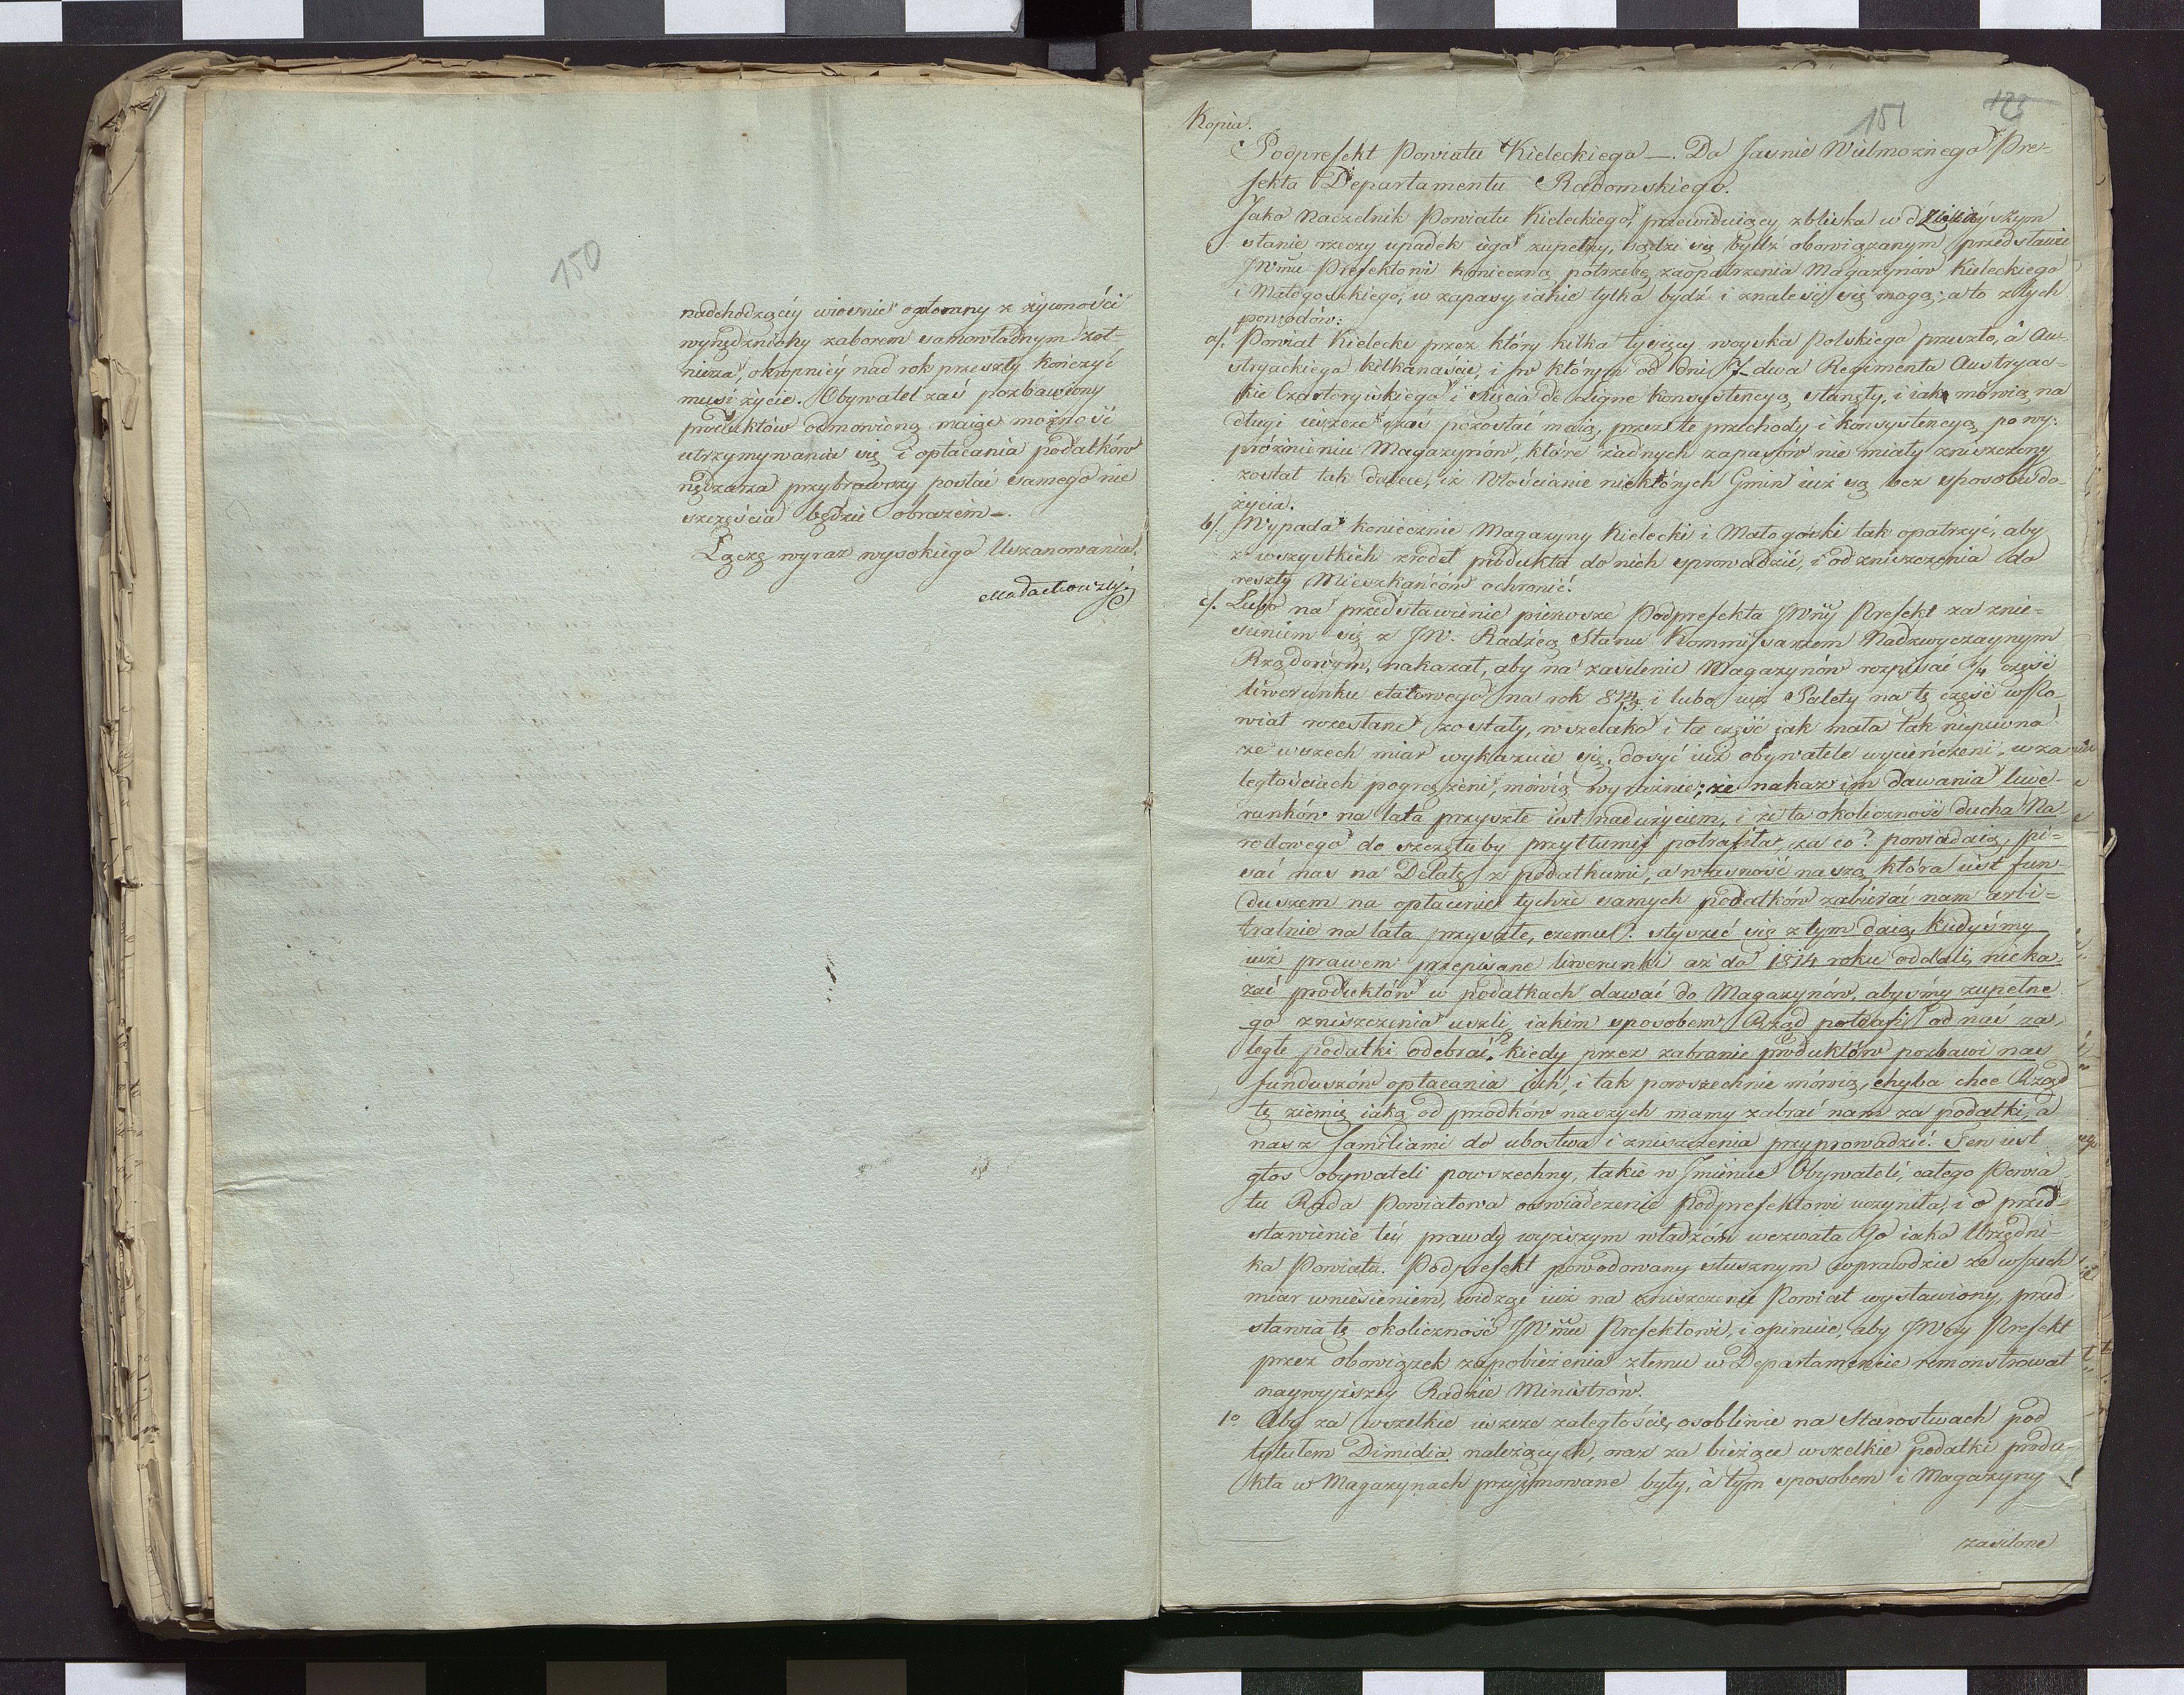 150
nadchodzącéy wiosnie ogołocony z żywności
wynędzniony zaborem samowładnym żoł-
nierza, okropniéy nad rok przeszły kończyć
musi życie. Obywatel zaś pozbawiony
produktów odmowioną maiąc możność
utrzymywania się i opłacania podatków
nędzarza przybrawszy postać samego nie
szczęścia będzie obrazem —.
Łączę wyraz wysokiego Uszanowania.
Małachowski
Kopia.
151
123
Podprefekt Powiatu Kieleckiego —. Do Jasnie Wielmoznego Pre-
fekta Departamentu Radomskiego.
Jako Naczelnik Powiatu Kieleckiego, przewiduiący zbliska w dzisieyszym
stanie rzeczy upadek iego zupełny, sądzi się bydź obowiązanym przedstawic
JWmu Prefektowi konieczną potrzebę zaopatrzenia Magazynów Kieleckiego
i Małogoskiego, w zapasy iakie tylko bydź i znaleść się mogą; a to z tych
powodów:
a/. Powiat Kielecki przez który kilka tysięcy woyska Polskiego przeszło, a Au-
stryackiego kilkanaście, i w którym od dni dwa Regimenta Austryac-
kie Czartoryiskiego i Xięcia de Ligne konsystencyą stanęły, i iak mówią na
długi ieszcze czas pozostać maią, przez te przechody i konsystencyą po wy:
próżnieniu Magazynów, które żadnych zapasów nie miały zniszczony
został tak dalece, iż Włościanie niektórych Gmin iuż są bez sposobu do
życia.
b/. Wypada koniecznie Magazyny Kielecki i Małogoski tak opatrzyć, aby
z wszystkich zrodeł produkta do nich sprowadzić, i od zniszczenia do
reszty Mieszkańców ochronić.
c/. Lubo na przedstawienie pierwsze Podprefekta JWny Prefekt za znie-
sieniem się z JW. Radzcą Stanu Kommissarzem Nadzwyczaynym
Rządowym, nakazał, aby na zasilenie Magazynów rozpisać 1/4 część
liwerunku etatowego na rok 813/14 i lubo iuż Palety na tę część w Po-
wiat rozesłane zostały, wszelako i ta część jak mała tak niepewna
ze wszech miar wykazuie się, dosyć iuż obywatele wycieńczeni, w za
ległościach pogrążeni, mówią wyraznie; że nakaz im dawania liwe-
runków na lata przyszłe iest nadużyciem, i że ta okoliczność ducha Na-
rodowego do szczętu by przytłumić potrafiła, za co? powiadaią, pi-
sać nas na Delatę z podatkami, a własność naszą która iest fun-
duszem na opłacenie tychże samych podatków zabierać nam arbi-
tralnie na lata przyszłe, czemu? słyszeć się z tym daią, kiedyśmy
iuż prawem przepisane liwerunki aż do 1814 roku oddali, nie ka-
zać produktów w podatkach dawać do Magazynów, abyśmy zupełne
go zniszczenia uszli, iakim sposobem Rząd potrafi od nas za-
ległe podatki odebrać? kiedy przez zabranie produktów pozbawi nas
funduszów opłacania ich, i tak powszechnie mówią, chyba chce Rząd
tę ziemię iaką od przodków naszych mamy zabrać nam za podatki, a
nas z familiami do ubostwa i zniszczenia przyprowadzić. Ten iest
głos obywateli powszechny, takie w Jmieniu Obywateli, całego Powia
tu Rada Powiatowa oswiadczenie Podprefektowi uczyniła, i o przed-
stawienie téy prawdy wyższym władzom wezwała Go iako Urzędni-
ka Powiatu. Podprefekt powodowany słusznym wprawdzie ze wszech
miar wniesieniem, widząc iuż na zniszczenie Powiat wystawiony, przed
stawia tę okoliczność JWmu Prefektowi, i opiniuie, aby JWny Prefekt
przez obowiązek zapobieżenia złemu w Departamencie remonstrował
naywyższey Radzie Ministrów.
1o Aby za wszelkie ieszcze zaległości, osobliwie na Starostwach pod
tytułem Dimidia należących, oraz za bieżące wszelkie podatki produ-
kta w Magazynach przyjmowane były, a tym sposobem i Magazyny
zasilone